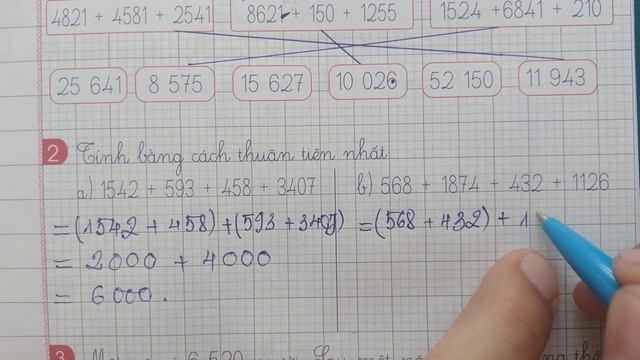 4821 + 4581 + 2541 8621 + 150 + 1255 1524 + 6841 + 210
25 641 8 575 15 627 10 026 52 150 11 943
2 Tính bằng cách thuận tiện nhất
a) 1542 + 593 + 458 + 3407 b) 568 + 1874 + 432 + 1126
= (1542 + 458) + (593 + 3407) = (568 + 432) + 1
= 2000 + 4000
= 6000.
3 6 520